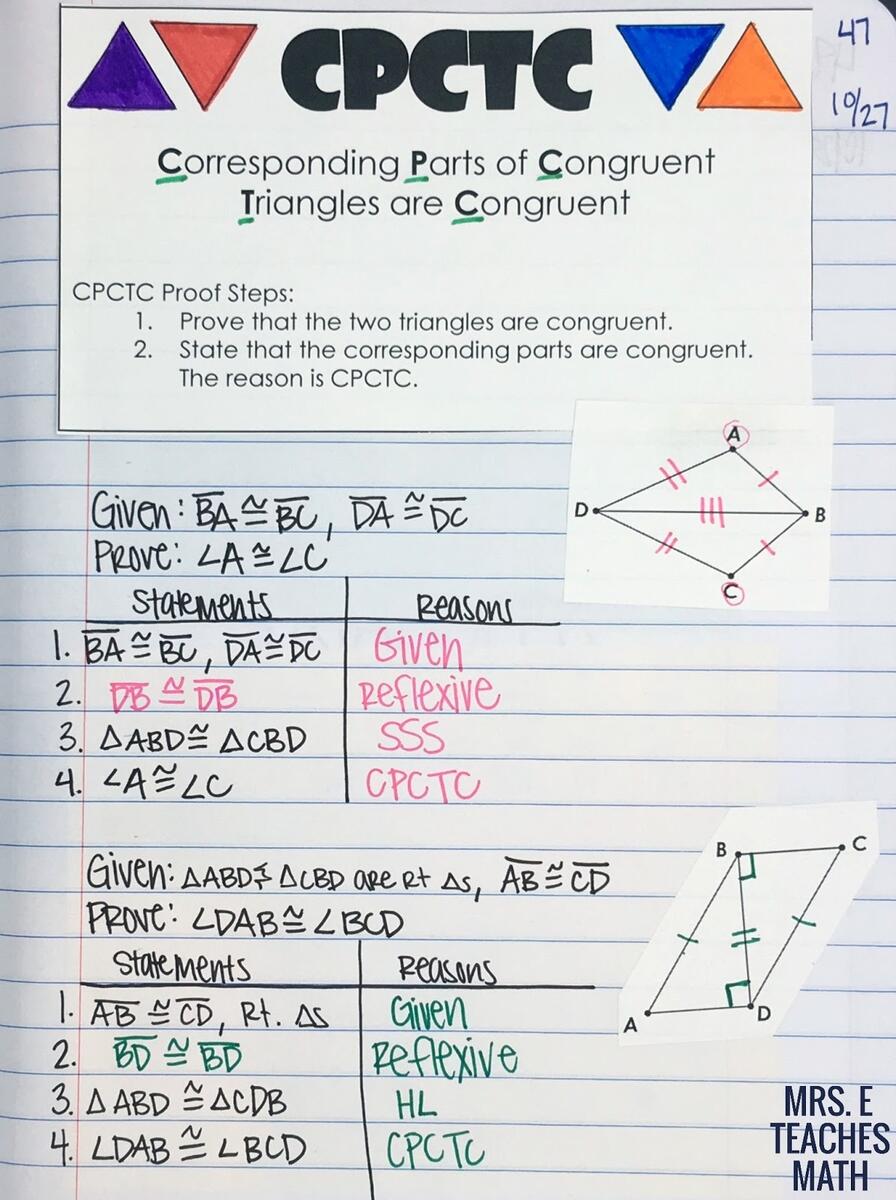 CPCTC
47
10/27
Corresponding Parts of Congruent
Triangles are Congruent
CPCTC Proof Steps:
1. Prove that the two triangles are congruent.
2. State that the corresponding parts are congruent.
The reason is CPCTC.
A
D
B
C
Given: BA ≅ BC, DA ≅ DC
Prove: ∠A ≅ ∠C
Statements Reasons
1. BA ≅ BC, DA ≅ DC Given
2. DB ≅ DB Reflexive
3. △ABD ≅ △CBD SSS
4. ∠A ≅ ∠C CPCTC
B
C
A
D
Given: △ABD & △CBD are Rt △s, AB ≅ CD
Prove: ∠DAB ≅ ∠BCD
Statements Reasons
1. AB ≅ CD, Rt. △s Given
2. BD ≅ BD Reflexive
3. △ABD ≅ △CDB HL
4. ∠DAB ≅ ∠BCD CPCTC
MRS. E
TEACHES
MATH